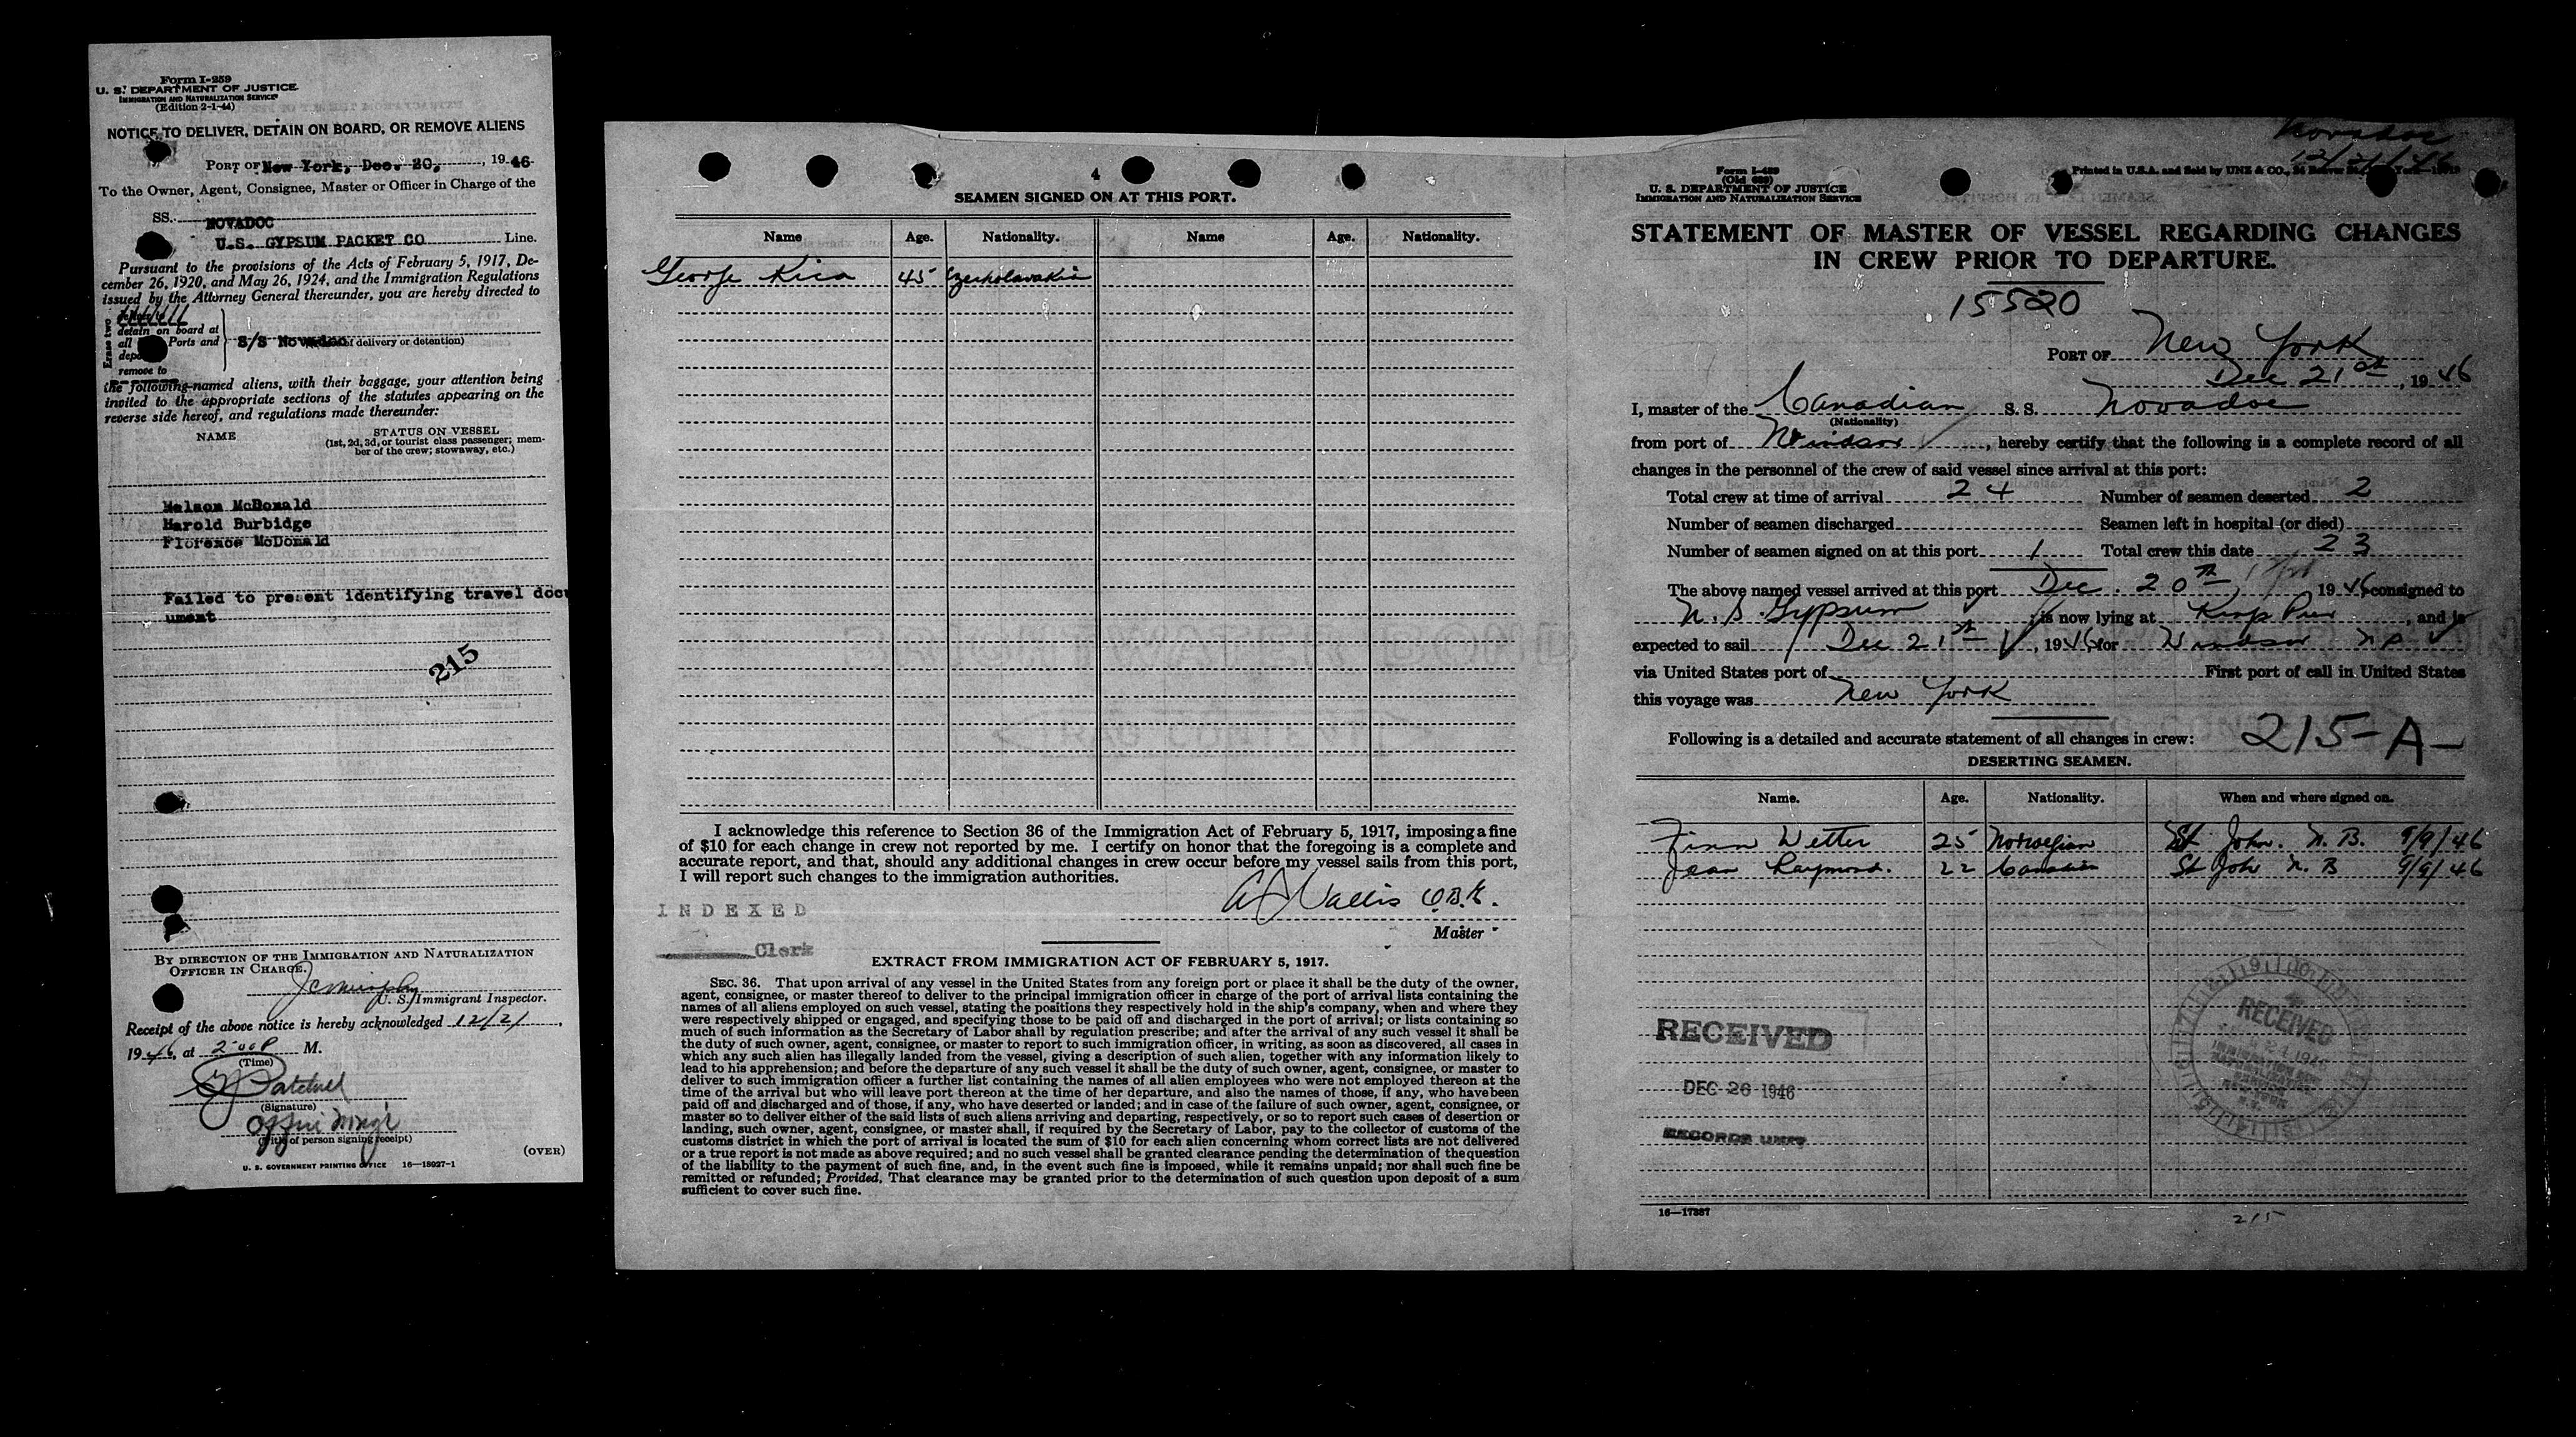 Form I-259
U. S. DEPARTMENT OF JUSTICE
IMMIGRATION AND NATURALIZATION SERVICE
(Edition 2-1-44)
NOTICE TO DELIVER, DETAIN ON BOARD, OR REMOVE ALIENS
PORT OF New York, Dec. 20, 1946
To the Owner, Agent, Consignee, Master or Officer in Charge of the
SS. NOVADOC
U.S. GYPSUM PACKET CO Line.
Pursuant to the provisions of the Acts of February 5, 1917, De-
cember 26, 1920, and May 26, 1924, and the Immigration Regulations
issued by the Attorney General thereunder, you are hereby directed to
Erase two
detain on board at
all Ports and
remove to
S/S Novadoc of delivery or detention)
the following-named aliens, with their baggage, your attention being
invited to the appropriate sections of the statutes appearing on the
reverse side hereof, and regulations made thereunder:
NAME
STATUS ON VESSEL
(1st, 2d, 3d, or tourist class passenger; mem-
ber of the crew; stowaway, etc.)
Nelson McDonald
Harold Burbidge
Florence McDonald
Failed to present identifying travel doc
ument
215
BY DIRECTION OF THE IMMIGRATION AND NATURALIZATION
OFFICER IN CHARGE.
U. S. Immigrant Inspector.
Receipt of the above notice is hereby acknowledged 12/21,
1946, at 2:00 P M.
(Time)
(Signature)
(Title of person signing receipt)
(OVER)
U. S. GOVERNMENT PRINTING OFFICE 16-18027-1
4
SEAMEN SIGNED ON AT THIS PORT.
Name Age. Nationality. Name Age. Nationality.
George Kica 45 Czechoslavakia
I acknowledge this reference to Section 36 of the Immigration Act of February 5, 1917, imposing a fine
of $10 for each change in crew not reported by me. I certify on honor that the foregoing is a complete and
accurate report, and that, should any additional changes in crew occur before my vessel sails from this port,
I will report such changes to the immigration authorities.
Wallis O.B.E.
Master
INDEXED
Clerk
EXTRACT FROM IMMIGRATION ACT OF FEBRUARY 5, 1917.
SEC. 36. That upon arrival of any vessel in the United States from any foreign port or place it shall be the duty of the owner,
agent, consignee, or master thereof to deliver to the principal immigration officer in charge of the port of arrival lists containing the
names of all aliens employed on such vessel, stating the positions they respectively hold in the ship's company, when and where they
were respectively shipped or engaged, and specifying those to be paid off and discharged in the port of arrival; or lists containing so
much of such information as the Secretary of Labor shall by regulation prescribe; and after the arrival of any such vessel it shall be
the duty of such owner, agent, consignee, or master to report to such immigration officer, in writing, as soon as discovered, all cases in
which any such alien has illegally landed from the vessel, giving a description of such alien, together with any information likely to
lead to his apprehension; and before the departure of any such vessel it shall be the duty of such owner, agent, consignee, or master to
deliver to such immigration officer a further list containing the names of all alien employees who were not employed thereon at the
time of the arrival but who will leave port thereon at the time of her departure, and also the names of those, if any, who have been
paid off and discharged and of those, if any, who have deserted or landed; and in case of the failure of such owner, agent, consignee, or
master so to deliver either of the said lists of such aliens arriving and departing, respectively, or so to report such cases of desertion or
landing, such owner, agent, consignee, or master shall, if required by the Secretary of Labor, pay to the collector of customs of the
customs district in which the port of arrival is located the sum of $10 for each alien concerning whom correct lists are not delivered
or a true report is not made as above required; and no such vessel shall be granted clearance pending the determination of the question
of the liability to the payment of such fine, and, in the event such fine is imposed, while it remains unpaid; nor shall such fine be
remitted or refunded; Provided, That clearance may be granted prior to the determination of such question upon deposit of a sum
sufficient to cover such fine.
Novadoc
12/21/46
Form I-489
(Old 689)
U. S. DEPARTMENT OF JUSTICE
IMMIGRATION AND NATURALIZATION SERVICE
Printed in U.S.A. and Sold by UNZ & CO.,
STATEMENT OF MASTER OF VESSEL REGARDING CHANGES
IN CREW PRIOR TO DEPARTURE.
15520
PORT OF New York
Dec 21st, 1946
I, master of the Canadian S. S. Novadoc
(Nationality)
from port of Windsor, hereby certify that the following is a complete record of all
changes in the personnel of the crew of said vessel since arrival at this port:
Total crew at time of arrival 24 Number of seamen deserted 2
Number of seamen discharged Seamen left in hospital (or died)
Number of seamen signed on at this port 1 Total crew this date 23
The above named vessel arrived at this port Dec. 20th 1946 consigned to
U. S. Gypsum is now lying at Pier, and is
expected to sail Dec 21st, 1946 for Windsor N S
via United States port of First port of call in United States
this voyage was New York
Following is a detailed and accurate statement of all changes in crew: 215-A-
DESERTING SEAMEN.
Name. Age. Nationality. When and where signed on.
Finn Wetter 25 Norwegian St John. N. B. 9/9/46
Jean Raymond. 22 Canadian St John N. B 9/9/46
RECEIVED
DEC 26 1946
RECORDS UNIT
RECEIVED
16—17887
215